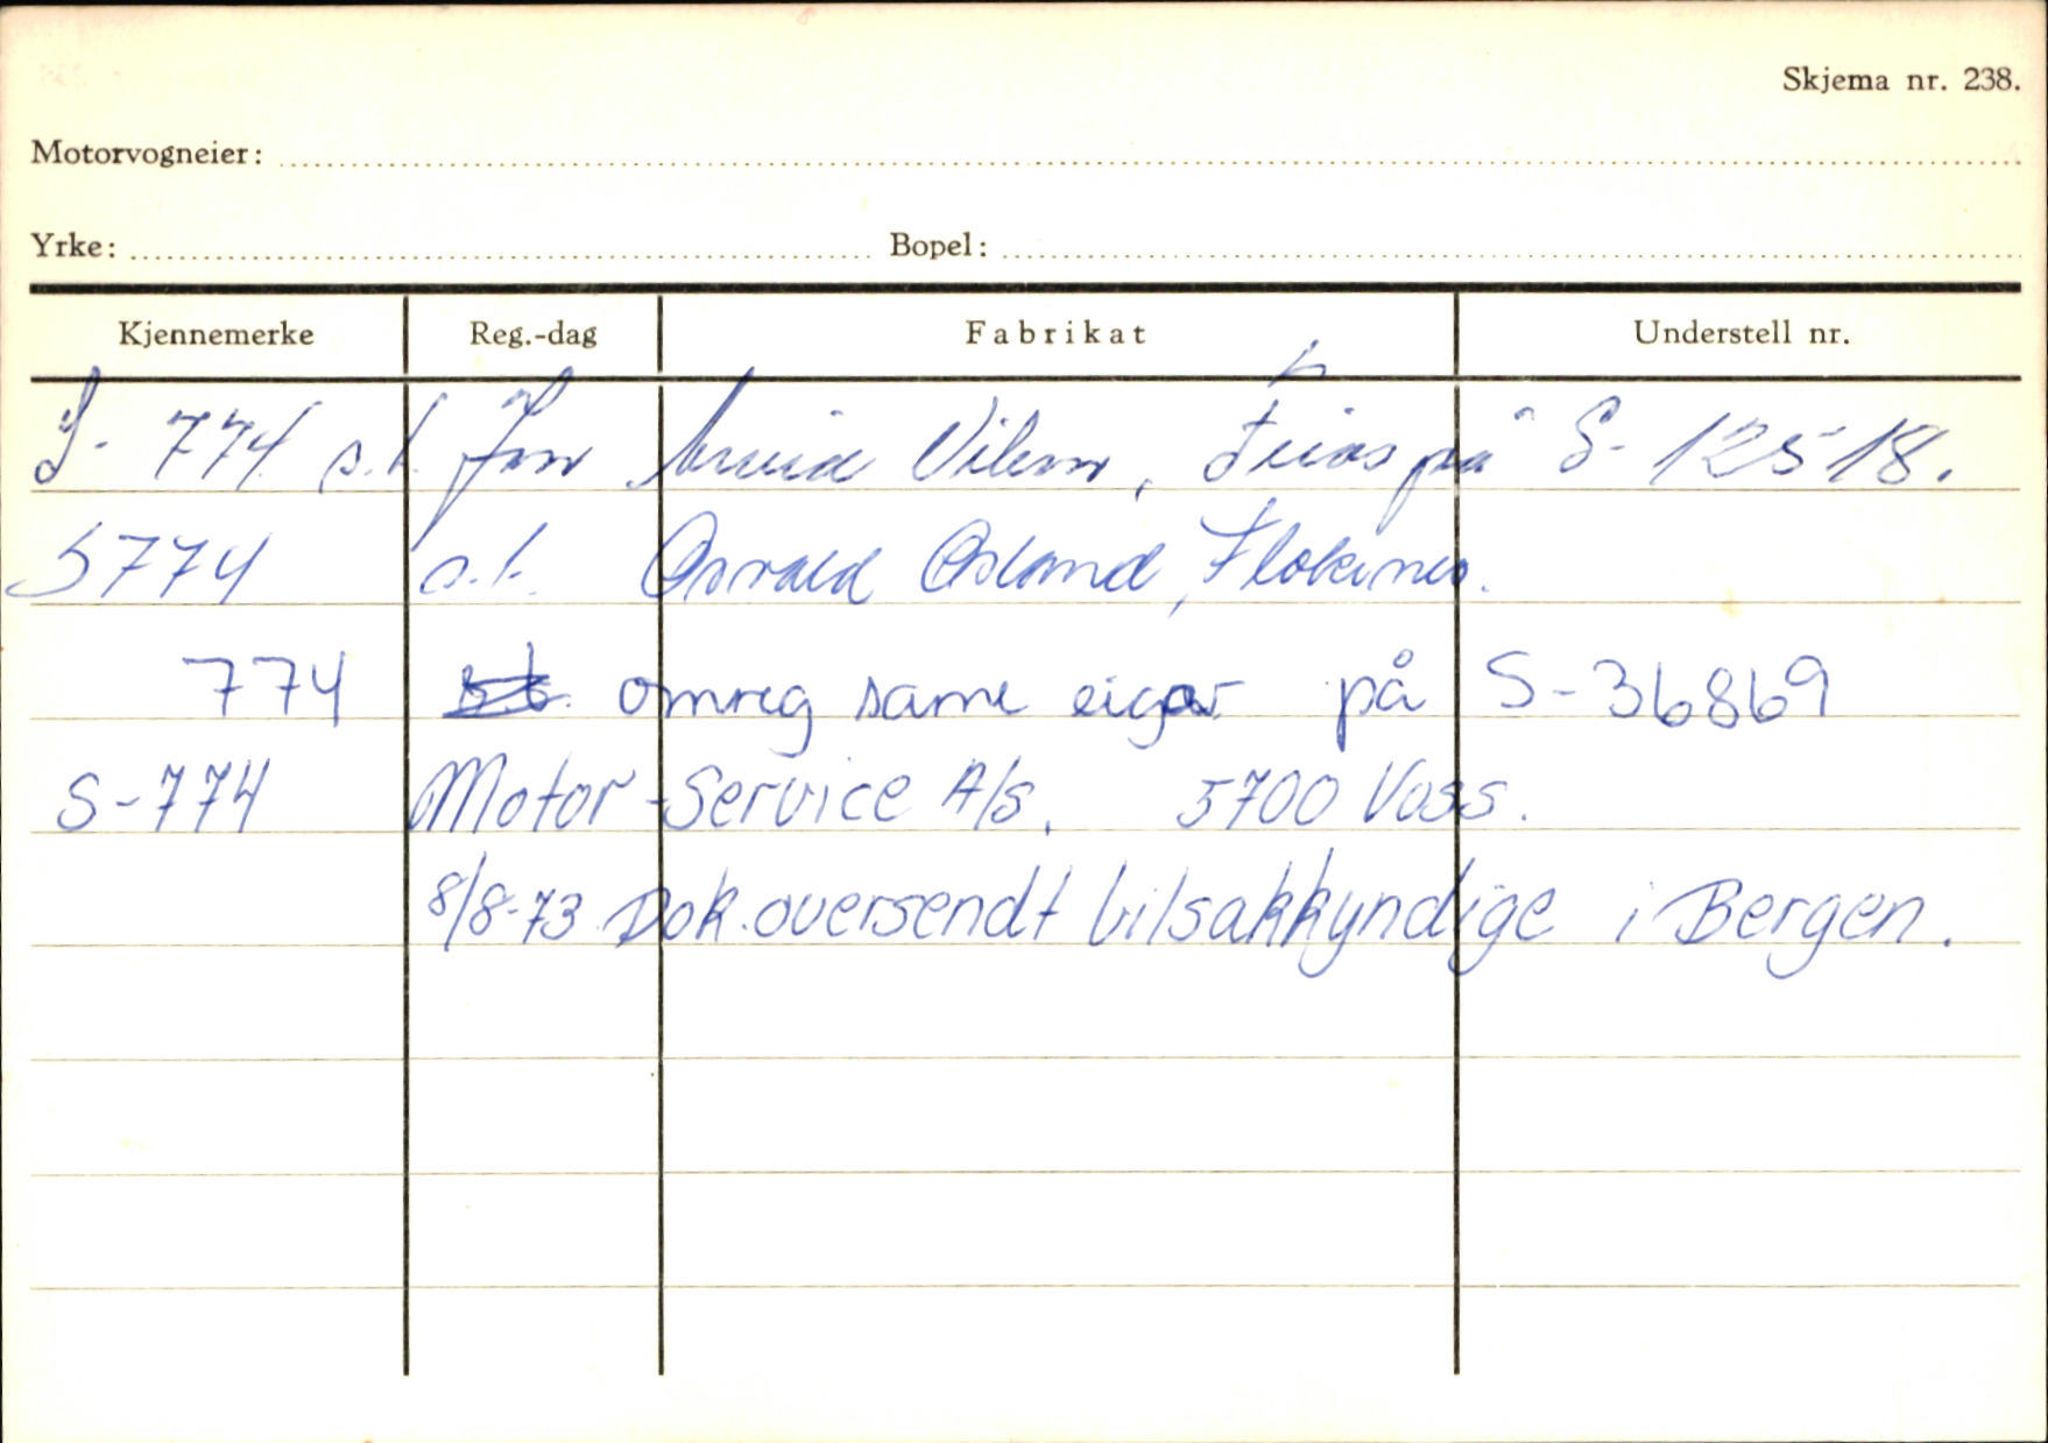 Skjema nr. 238.
Motorvogneier:
Yrke: Bopel:
Kjennemerke Reg.-dag Fabrikat Understell nr.
S- 774 s.t. på S- 12518.
S774 s.t. Osvald Osland, Flokenes.
774 omreg same eigar på S-36869
S-774 Motor-Service A/s. 5700 Voss.
8/8-73 Dok. oversendt bilsakkyndige i Bergen.